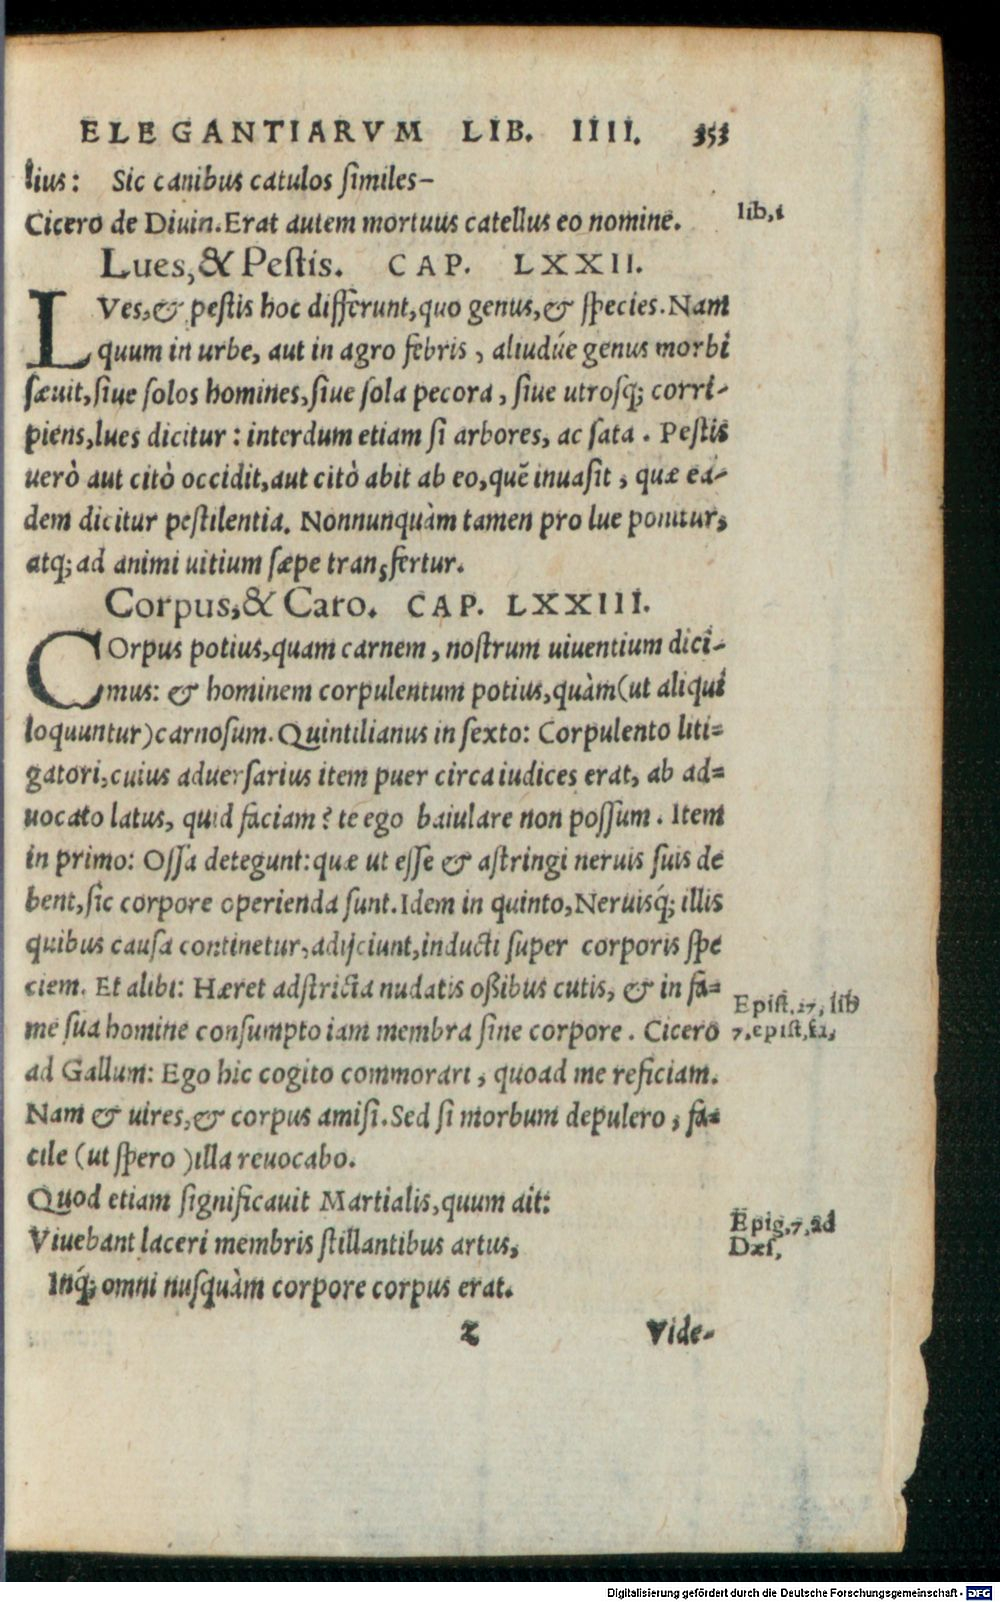 ELEGANTIARVM LIB. IIII. 353
lius: Sic canibus catulos similes–
Cicero de Diuin. Erat autem mortuus catellus eo nomine. lib,i
Lues, & Pestis. CAP. LXXII.
LVes, & pestis hoc differunt, quo genus, & species. Nam
quum in urbe, aut in agro febris, aliudúe genus morbi
sæuit, siue solos homines, siue sola pecora, siue utrosq; corri-
piens, lues dicitur: interdum etiam si arbores, ac sata. Pestis
uerò aut citò occidit, aut citò abit ab eo, quẽ inuasit, quæ ea-
dem dicitur pestilentia. Nonnunquàm tamen pro lue ponitur,
atq; ad animi uitium sæpe transfertur.
Corpus, & Caro. CAP. LXXIII.
COrpus potius, quam carnem, nostrum uiuentium dici-
mus: & hominem corpulentum potius, quàm (ut aliqui
loquuntur) carnosum. Quintilianus in sexto: Corpulento liti=
gatori, cuius aduersarius item puer circa iudices erat, ab ad=
uocato latus, quid faciam? te ego baiulare non possum. Item
in primo: Ossa detegunt: quæ ut esse & astringi neruis suis de
bent, sic corpore operienda sunt. Idem in quinto, Neruisq́; illis
quibus causa continetur, adijciunt, inducti super corporis spe
ciem. Et alibi: Hæret adstricta nudatis oßibus cutis, & in fa=
me sua homine consumpto iam membra sine corpore. Cicero
Epist. 17, lib
7. epist,
ad Gallum: Ego hic cogito commorari, quoad me reficiam.
Nam & uires, & corpus amisi. Sed si morbum depulero, fa=
cile (ut spero) illa reuocabo.
Quod etiam significauit Martialis, quum ait:
Viuebant laceri membris stillantibus artus,
Epig,7,ad
Dæs,
Inq́; omni nusquàm corpore corpus erat.
z Vide-
Digitalisierung gefördert durch die Deutsche Forschungsgemeinschaft - DFG